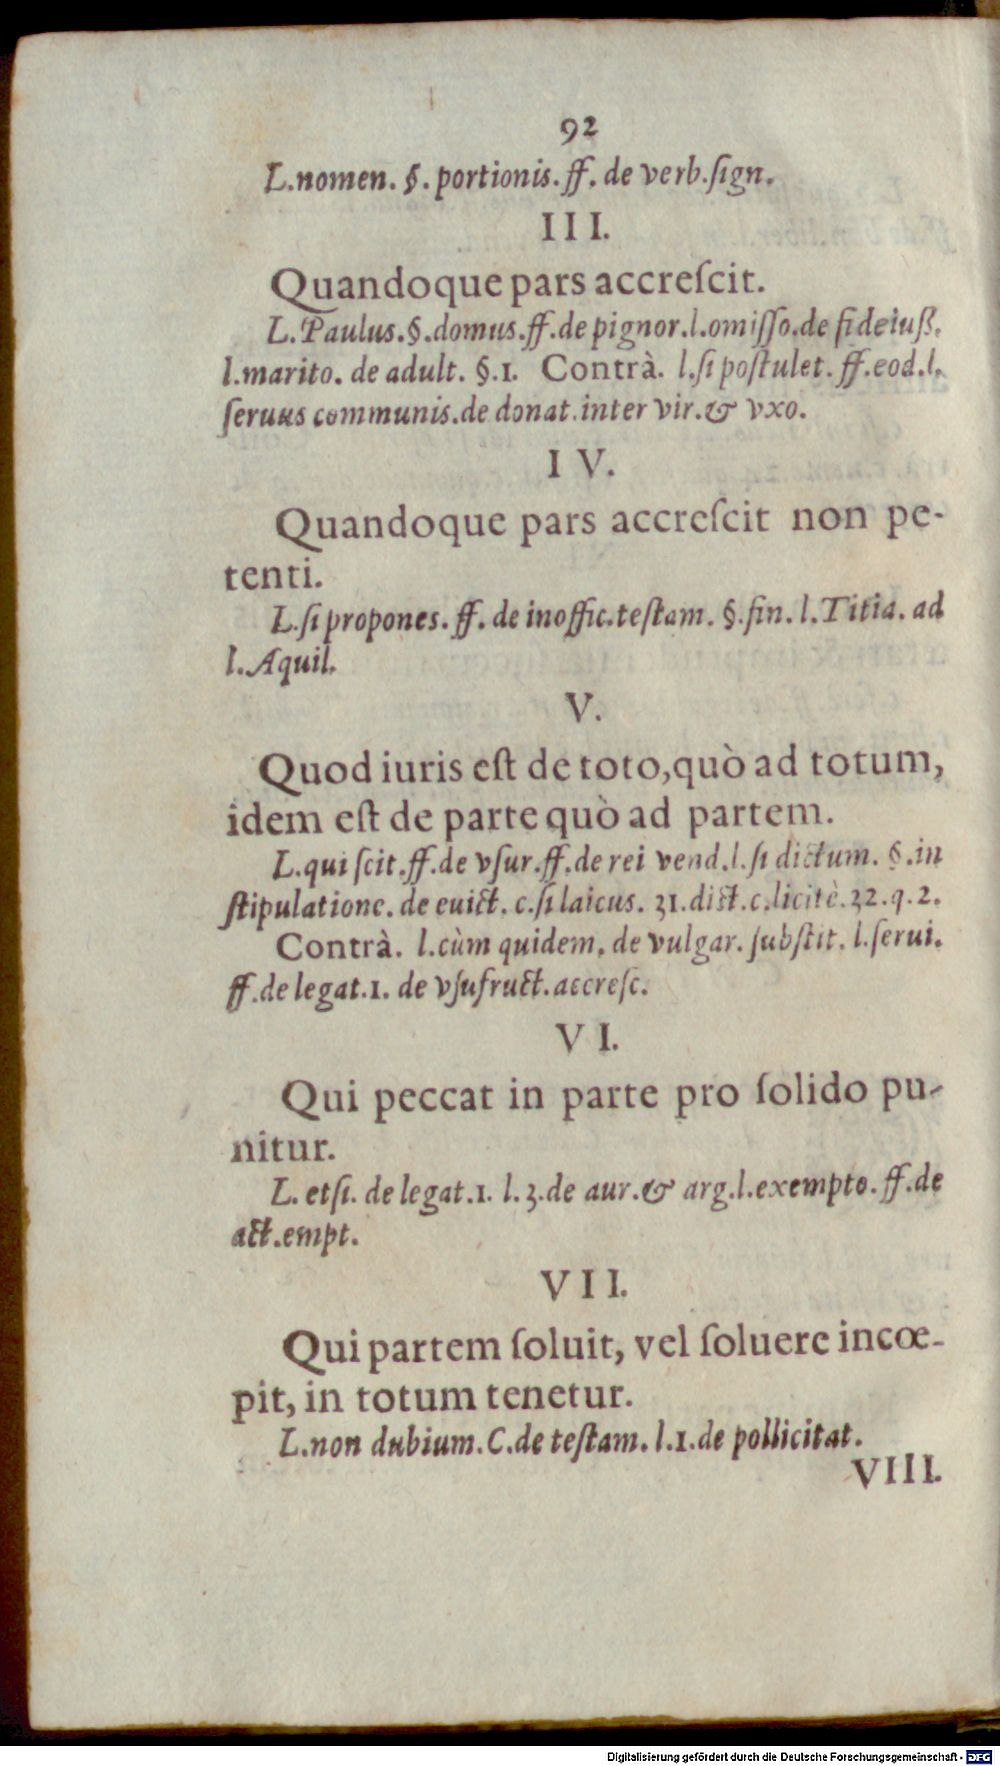 92
L.nomen. §. portionis. ff. de verb.ſign.
III.
Quandoque pars accreſcit.
L.Paulus.§.domus.ff.de pignor.l.omiſſo.de fideiuß.
l.marito. de adult. §.1. Contrà. l.ſi poſtulet. ff.eod.l.
ſeruus communis.de donat.inter vir.& vxo.
IV.
Quandoque pars accreſcit non pe-
tenti.
L.ſi propones. ff. de inoffic.teſtam. §.fin. l.Titia. ad
l.Aquil.
V.
Quod iuris eſt de toto,quò ad totum,
idem eſt de parte quò ad partem.
L.qui ſcit.ff.de vſur.ff.de rei vend.l.ſi dictum. §.in
ſtipulatione. de euict. c.ſi laicus. 31.diſt.c.licitè.32.q.2.
Contrà. l.cùm quidem. de vulgar. ſubſtit. l.ſerui.
ff.de legat.1. de vſufruct.accreſc.
VI.
Qui peccat in parte pro ſolido pu-
nitur.
L. etſi. de legat.1. l.3.de aur.& arg.l.exempto.ff.de
act.empt.
VII.
Qui partem ſoluit, vel ſoluere incœ-
pit, in totum tenetur.
L.non dubium.C.de teſtam.l.1.de pollicitat.
VIII.
Digitalisierung gefördert durch die Deutsche Forschungsgemeinschaft - DFG